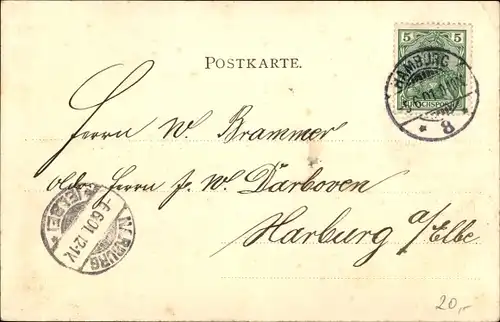 5 5
REICHSPOST
HAMBURG
8
POSTKARTE.
Herrn W. Brammer
Herrn J. W. Darboven
Harburg a/Elbe.
HARBURG
6.6.01. 12-1V.
(ELBE)
20,-